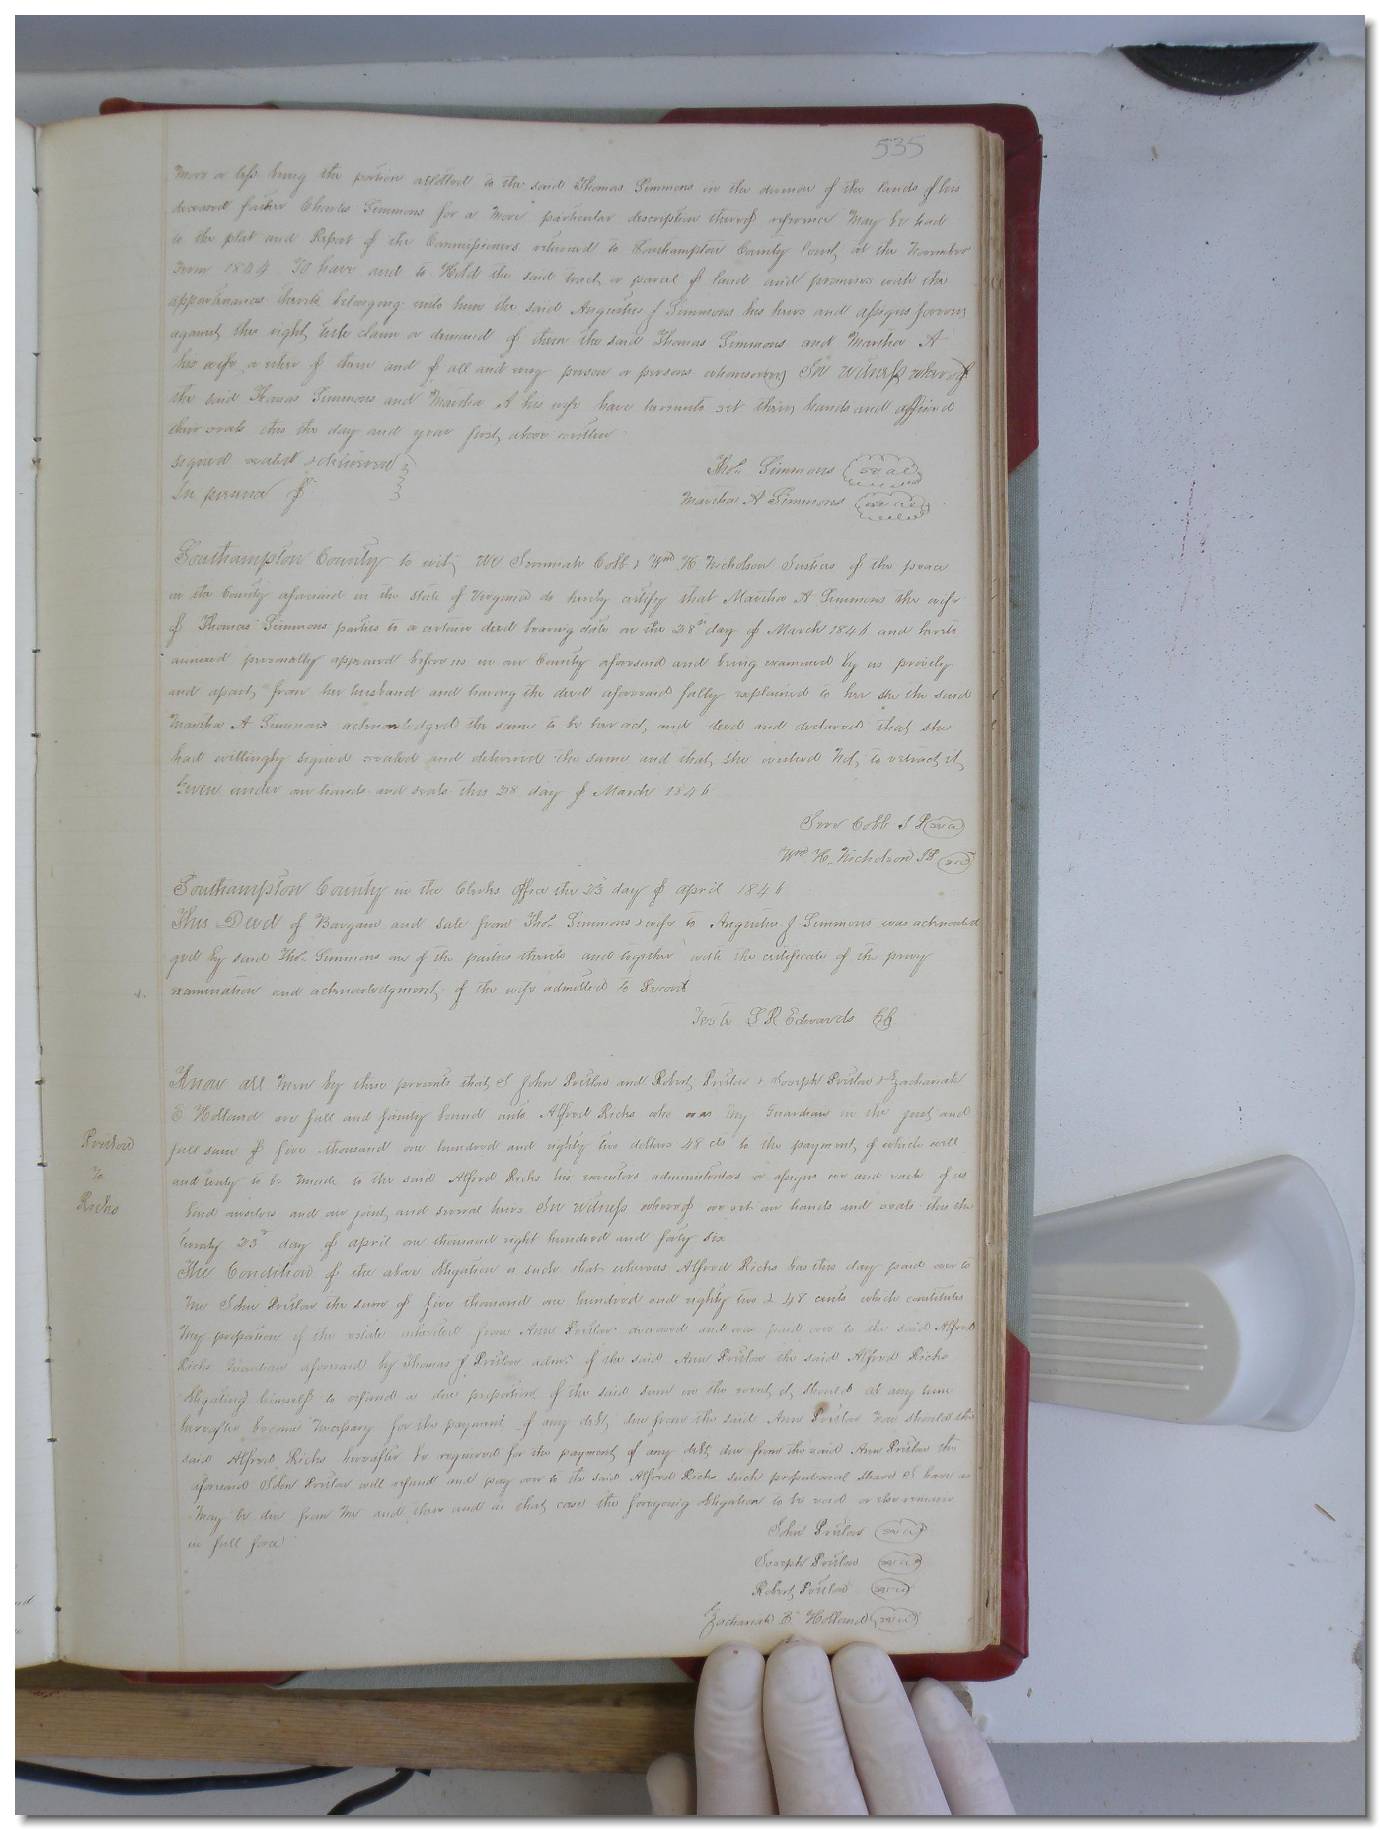 535
more or less being the portion allotted to the said Thomas Simmons in the division of the lands of his
deceased father Charles Simmons for a more particular description thereof reference may be had
to the plat and Report of the Commissioners returned to Southampton County Court at the November
Term 1844 To have and to Hold the said tract or parcel of land and premises with the
appurtenances thereto belonging unto him the said Augustus J Simmons his heirs and assigns forever
against the right title claim or demand of them the said Thomas Simmons and Martha A
his wife or either of them and of all and every person or persons whomsoever In witness whereof
the said Thomas Simmons and Martha A his wife have hereunto set their hands and affixed
their seals this the day and year first above written
signed sealed & delivered
In presence of
Thos. Simmons seal
Martha A Simmons seal
Southampton County to wit We Jeremiah Cobb & Wm H Nicholson Justices of the peace
in the County aforesaid in the state of Virginia do hereby certify that Martha A Simmons the wife
of Thomas Simmons parties to a certain deed bearing date on the 28th day of March 1846 and hereto
annexed personally appeared before us in our County aforesaid and being examined by us privily
and apart from her husband and having the deed aforesaid fully explained to her she the said
Martha A Simmons acknowledged the same to be her act and deed and declared that she
had willingly signed sealed and delivered the same and that she wished not to retract it
Given under our hands and seals this 28 day of March 1846
Jere Cobb J P seal
Wm H. Nicholson JP seal
Southampton County in the Clerks office the 23 day of april 1846
This Deed of Bargain and sale from Thos. Simmons & wife to Augustus J Simmons was acknowled
ged by said Thos. Simmons one of the parties thereto and together with the certificate of the privy
examination and acknowledgment of the wife admitted to Record
Teste L R Edwards CC
Pretlow
to
Ricks
Know all men by these presents that I John Pretlow and Robert Pretlow & Joseph Pretlow & Zachariah
E Holland are full and firmly bound unto Alfred Ricks who was my Guardian in the just and
full sum of five thousand one hundred and eighty two dollars 48 cts to the payment of which well
and truly to be made to the said Alfred Ricks his executors administrators or assigns we and each of us
bind ourselves and our joint and several heirs In witness whereof we set our hands and seals this the
twenty 23d day of april one thousand eight hundred and forty six
The Condition of the above obligation is such that whereas Alfred Ricks has this day paid over to
me John Pretlow the sum of five thousand one hundred and eighty two & 48 cents which constitutes
my proportion of the estate inherited from Ann Pretlow deceased and was paid over to the said Alfred
Ricks Guardian aforesaid by Thomas J Pretlow admr. of the said Ann Pretlow the said Alfred Ricks
obligating himself to refund a due proportion of the said sum in the event it should at any time
hereafter become necessary for the payment of any debt due from the said Ann Pretlow now should the
said Alfred Ricks hereafter be required for the payment of any debt due from the said Ann Pretlow the
aforesaid John Pretlow will refund and pay over to the said Alfred Ricks such proportional share I have as
may be due from me and then and in that case the foregoing obligation to be void or else remain
in full force
John Pretlow seal
Joseph Pretlow seal
Robert Pretlow seal
Zachariah E Holland seal